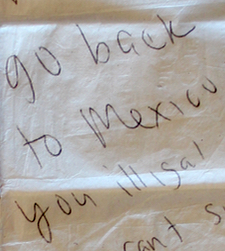 go back
to Mexico
you illigal
cant